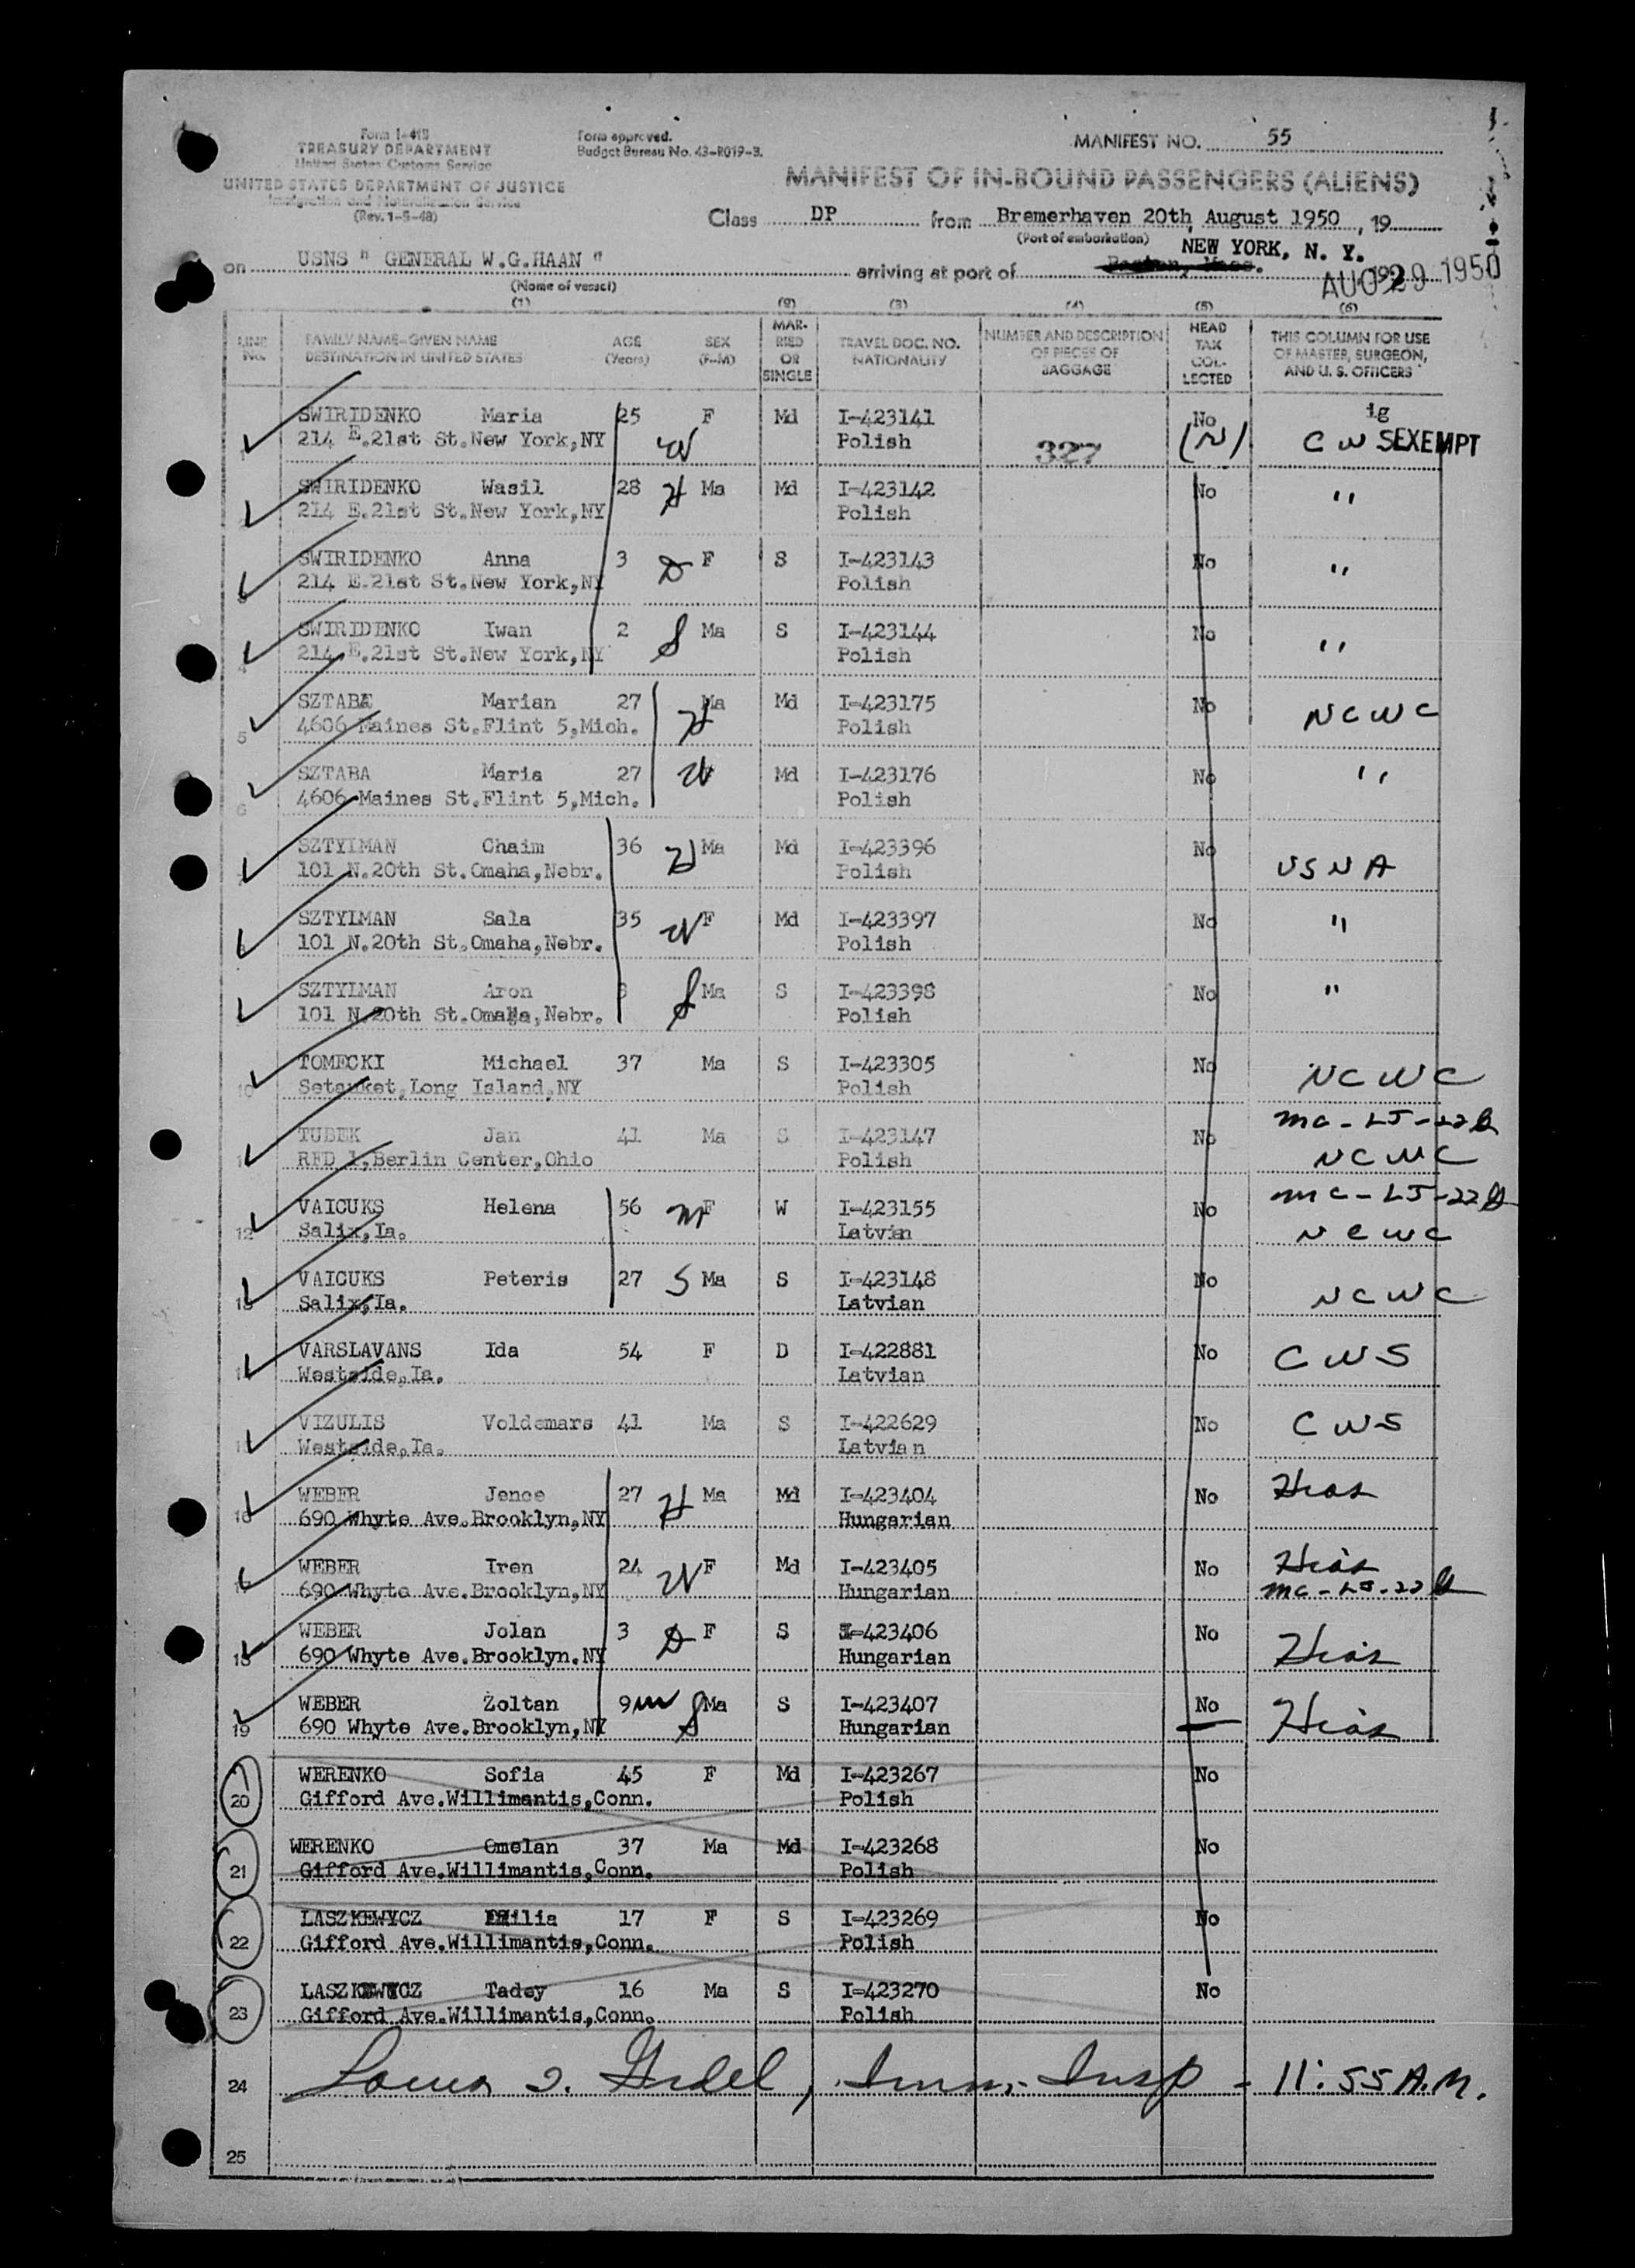 Form I-418
TREASURY DEPARTMENT
United States Customs Service
UNITED STATES DEPARTMENT OF JUSTICE
Immigration and Naturalization Service
(Rev. 1-5-48)
Form approved.
Budget Bureau No. 43-R019-3.
MANIFEST NO. 55
MANIFEST OF IN-BOUND PASSENGERS (ALIENS)
Class DP from Bremerhaven 20th, August 1950, 19
(Port of embarkation)
NEW YORK, N. Y.
on USNS " GENERAL W.G.HAAN " arriving at port of
AUG 29 1950
(Name of vessel)
(1) (2) (3) (4) (5) (6)
LINE No. FAMILY NAME-GIVEN NAME DESTINATION IN UNITED STATES AGE (Years) SEX (F-M) MARRIED OR SINGLE TRAVEL DOC. NO. NATIONALITY NUMBER AND DESCRIPTION OF PIECES OF BAGGAGE HEAD TAX COLLECTED THIS COLUMN FOR USE OF MASTER, SURGEON, AND U. S. OFFICERS
SWIRIDENKO Maria 25 F Md I-423141 No ig
214 E.21st St.New York,NY W Polish 327 (N) C W S EXEMPT
SWIRIDENKO Wasil 28 H Ma Md I-423142 No "
2 214 E.21st St.New York,NY Polish
SWIRIDENKO Anna 3 D F S I-423143 No "
3 214 E.21st St.New York,NY Polish
SWIRIDENKO Iwan 2 S Ma S I-423144 No "
4 214 E.21st St.New York,NY Polish
SZTABA Marian 27 Ma Md I-423175 No NCWC
5 4606 Maines St.Flint 5,Mich. H Polish
SZTABA Maria 27 W Md I-423176 No "
6 4606 Maines St.Flint 5,Mich. Polish
SZTYLMAN Chaim 36 H Ma Md I-423396 No
101 N.20th St.Omaha,Nebr. Polish USNA
SZTYLMAN Sala 35 W F Md I-423397 No "
101 N.20th St.Omaha,Nebr. Polish
SZTYLMAN Aron S Ma S I-423398 No "
101 N.20th St.Omaha,Nebr. Polish
TOMECKI Michael 37 Ma S I-423305 No NCWC
10 Setauket,Long Island,NY Polish
TUBEK Jan 41 Ma S I-423147 No mc-LJ-22b
RFD 1,Berlin Center,Ohio Polish NCWC
VAICUKS Helena 56 m F W I-423155 No mc-LJ-22b
12 Salix,Ia. Latvian NCWC
VAICUKS Peteris 27 S Ma S I-423148 No
13 Salix,Ia. Latvian NCWC
VARSLAVANS Ida 54 F D I-422881 No CWS
Westside,Ia. Latvian
VIZULIS Voldemars 41 Ma S I-422629 No CWS
Westside,Ia. Latvian
WEBER Jenoe 27 H Ma Md I-423404 No Hias
16 690 Whyte Ave.Brooklyn,NY Hungarian
WEBER Iren 24 W F Md I-423405 No Hias
17 690 Whyte Ave.Brooklyn,NY Hungarian mc-LJ-22b
WEBER Jolan 3 D F S I-423406 No Hias
18 690 Whyte Ave.Brooklyn.NY Hungarian
WEBER Zoltan 9m S Ma S I-423407 No Hias
19 690 Whyte Ave.Brooklyn,NY Hungarian
WERENKO Sofia 45 F Md I-423267 No
20 Gifford Ave.Willimantis,Conn. Polish
WERENKO Omelan 37 Ma Md I-423268 No
21 Gifford Ave.Willimantis,Conn. Polish
LASZKEWYCZ Emilia 17 F S I-423269 No
22 Gifford Ave.Willimantis,Conn. Polish
LASZKEWYCZ Tadey 16 Ma S I-423270 No
23 Gifford Ave.Willimantis,Conn. Polish
24 Imm. Insp - 11:55 A.M.
25